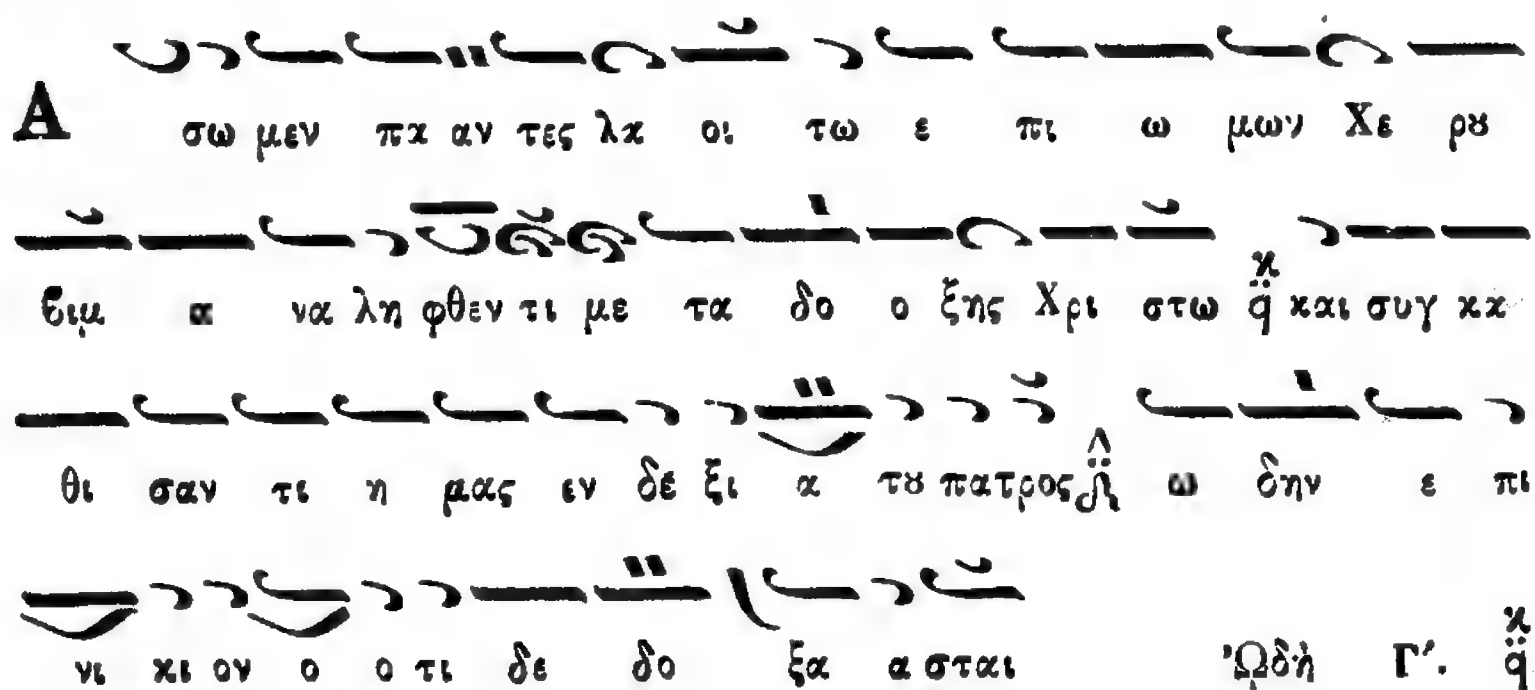 Α σω μεν πα αν τες λα οι τω ε πι ω μων Χε ρȣ
ϐιμ α να λη φθεν τι με τα δο ο ξης Χρι στω και συγ κα
θι σαν τι η μας εν δε ξι α τȣ πατρος ω δην ε πι
νι κι ον ο ο τι δε δο ξα α σται Ὠδὴ Γʹ.